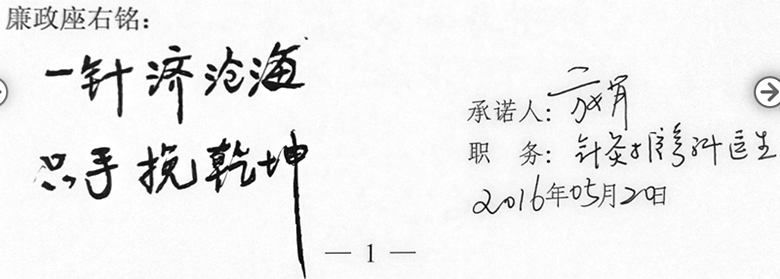 廉政座右铭：
一针济沧海
只手挽乾坤
承诺人：
职 务：针灸推拿科医生
2016年05月20日
— 1 —